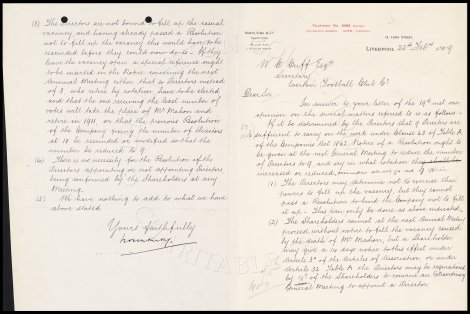 14, Cook Street,
LIVERPOOL, 22nd Feby 1909
W. C. Cuff Esqre
Secretary
Everton Football Club Co
Dear Sir
In answer to your letter of the 19th inst our
opinion on the several matters referred to is as follows:-
If it be determined by the Directors that 9 Directors are
sufficient to carry on the work under Clause 63 of Table A
of the Companies Act 1862, Notice of a Resolution ought to
be given at the next General Meeting to reduce the number
of Directors to 9 and say in what rotation
increased or reduced
(1) The Directors may determine not to exercise their
powers to fill up the vacancy, but they cannot
pass a Resolution to bind the Company not to fill
it up. This can only be done as above indicated.
(2) The Shareholders cannot at the next Annual Meeting
proceed without notice to fill the vacancy caused
by the death of Mr Mahon, but a Shareholder
may give a 14 day notice to this effect under
Article 3 of the Articles of Association or under
Article 32 Table A the Directors may be requisitioned
by 1/5th of the Shareholders to convene an Extraordinary
General Meeting to appoint a Director.
(3) The Directors are not bound to fill up the casual
vacancy, and having already passed a Resolution
not to fill up the vacancy this would have to be
rescinded before they could now do so. If they
leave the vacancy open a special reference ought
to be inserted in the Notice convening the next
Annual Meeting either that 4 Directors instead
of 3 who retire by rotation have to be elected
and that the one receiving the least number of
votes will take the place of Mr Mahon and
retire in 1911, or that the previous Resolution
of the Company fixing the number of Directors
at 10 be rescinded or modified so that the
number be reduced to 9.
(4) There is no necessity for the Resolution of the
Directors appointing or not appointing Directors
being confirmed by the Shareholders at any
Meeting.
(5) We have nothing to add to what we
have above stated
Yours faithfully